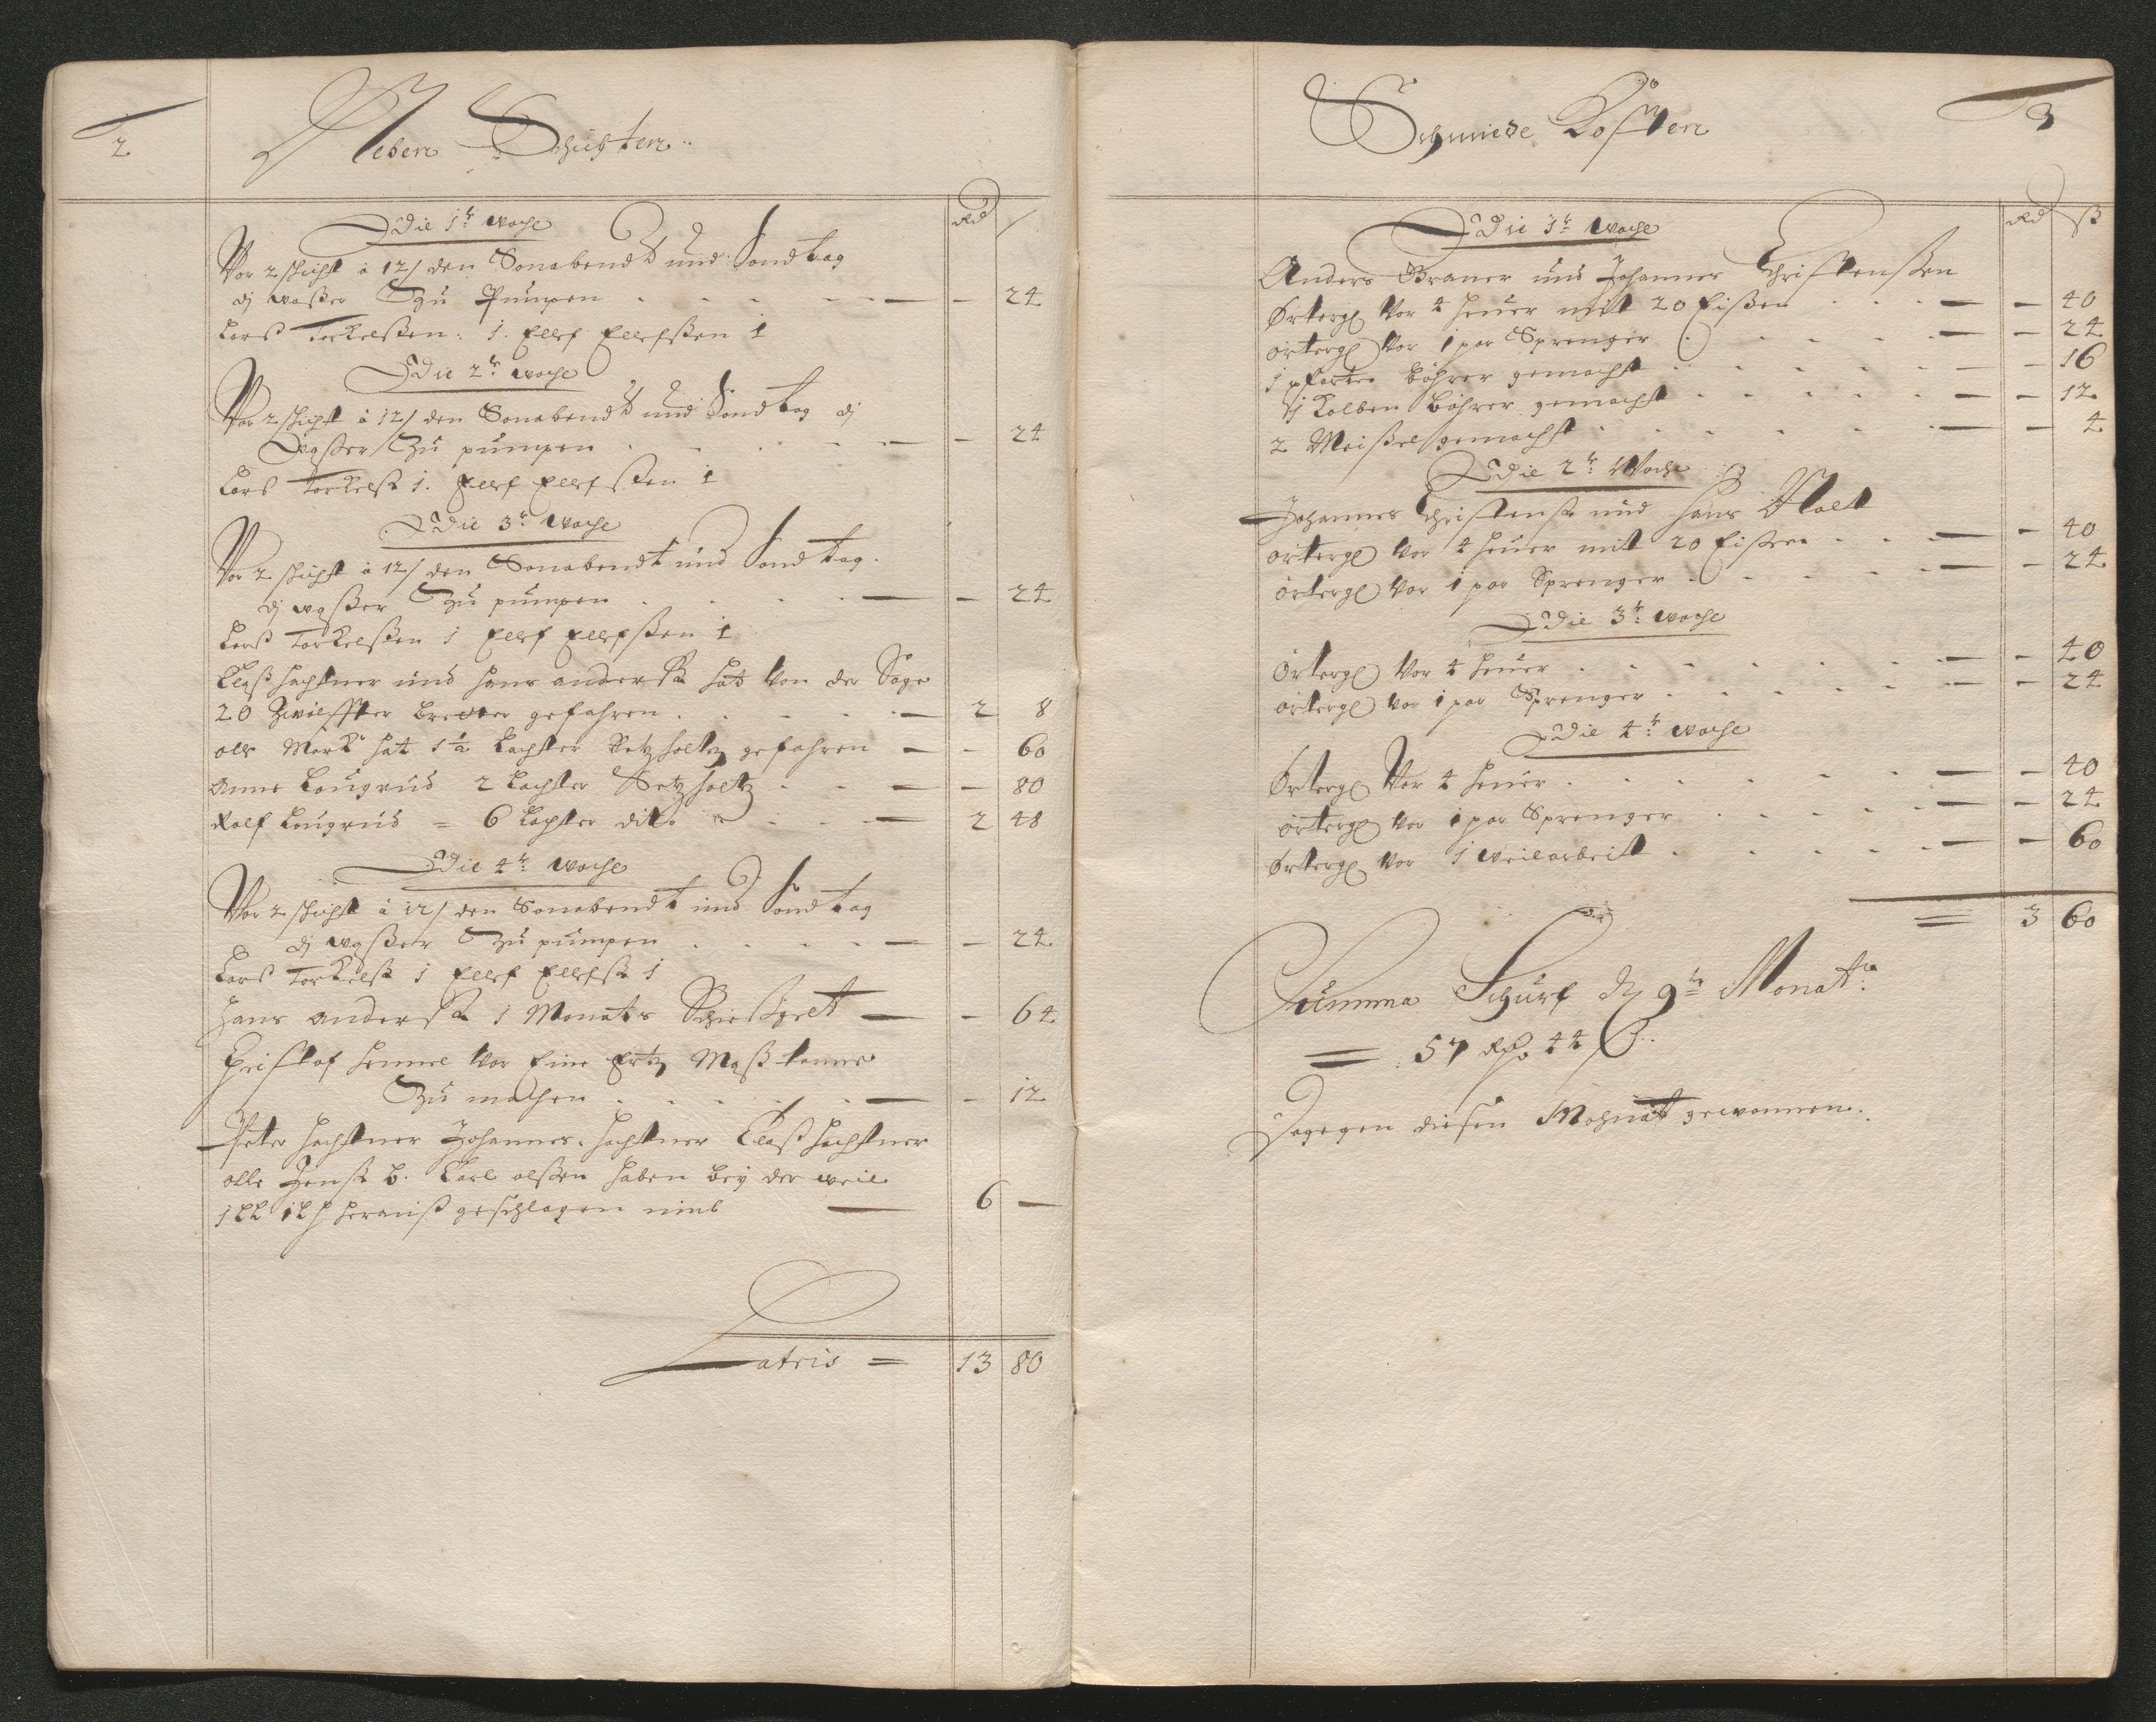 2
Neben Schichten
Rd /
Die 1te woche
Vor 2 schicht a 12 / den Sonabendt und Sondtag
dz waßer Zu Pumpen - 24
Lars Torkelßen: 1. Ellef Ellefßen 1
Die 2te woche
Vor 2 schicht a 12 / den Sonabendt und Sondtag dz
Waßer Zu pumpen - 24
Lars Torkelß 1. Ellef Ellefßen 1
Die 3te woche
Vor 2 schicht a 12 / den Sonabendt und Sondtag.
dz waßer Zu pumpen - 24
Lars Torkelßen 1 Ellef Ellefßen 1
Claß hechtner und Hans anderß hat von der Sage
20 Zwölffter Bretter gefahren - 2 8
ole Mörk hat 1½ Lachter Setzholtz gefahren - - 60
Anne Laugrud 2 Lachter Setzholtz - - 80
Rolf Laugrud = 6 Lachter dito - 2 48
Die 4te woche
Vor 2 schicht a 12 / den Sonabendt und Sondtag
dz waßer Zu pumpen - - 24.
Lars Torkelß 1 Ellef Ellefß 1
Hans anderß 1 Monats - - 64
Christof Hemmel vor Eine Ertz Maß tonne
Zu machen - - 12
Peter hechtner Johannes hechtner Claß hechtner
olle Jenß b. Carl olßen haben bey der weil
herauß geschlagen 6 -
Latris = 13 80
3
Schmiede Kosten
Rd ß
Die 1te woche
Anders Braner und Johannes Christenßen
örtergl vor 4 heuer mit 20 Eißen - - 40
örtergl vor 1 par Sprenger - - 24
1 böhrer gemacht - - 16
1 Kolben böhrer gemacht - - 12
2 Meißel gemacht - - 4
Die 2te Woche
Johannes Christenß und Hans
örtergl vor 4 heuer mit 20 Eißen - - 40
örtergl vor 1 par Sprenger - - 24
Die 3te woche
örtergl vor 4 heuer - - 40
örtergl vor 1 par Sprenger - - 24
Die 4te woche
örtergl Vor 4 heuer - - 40
örtergl vor 1 par Sprenger - - 24
örtergl vor 1 weilarbeit - - 60
= 3 60
Summa Schurf dz 9te Monat
= 57 Rd 44 ß
Dagegen diesen Mohnat gewonnen.